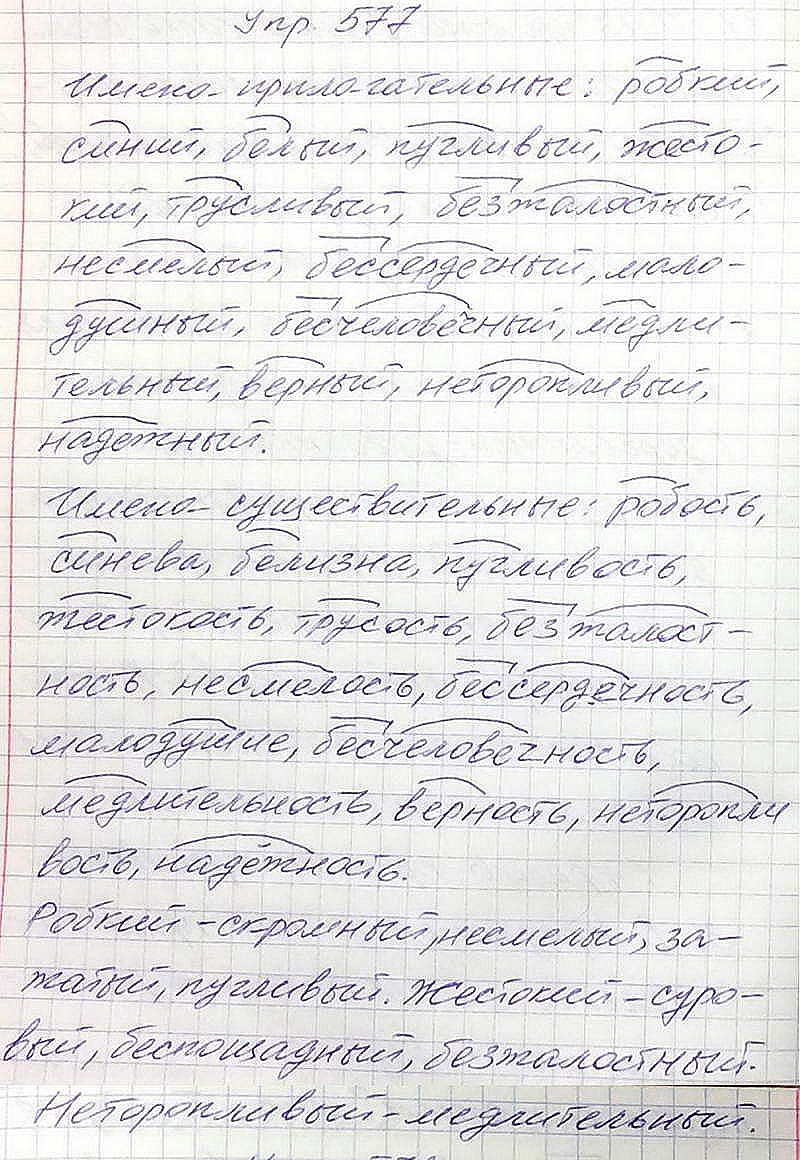 Упр. 577
Имена прилагательные: робкий,
синий, белый, пугливый, жесто-
кий, трусливый, безжалостный,
несмелый, бессердечный, мало-
душный, бесчеловечный, медли-
тельный, верный, неторопливый,
надежный.
Имена существительные: робость,
синева, белизна, пугливость,
жестокость, трусость, безжалост-
ность, несмелость, бессердечность,
малодушие, бесчеловечность,
медлительность, верность, неторопли
вость, надёжность.
Робкий - скромный, несмелый, за-
жатый, пугливый. Жестокий - суро-
вый, беспощадный, безжалостный.
Неторопливый - медлительный.